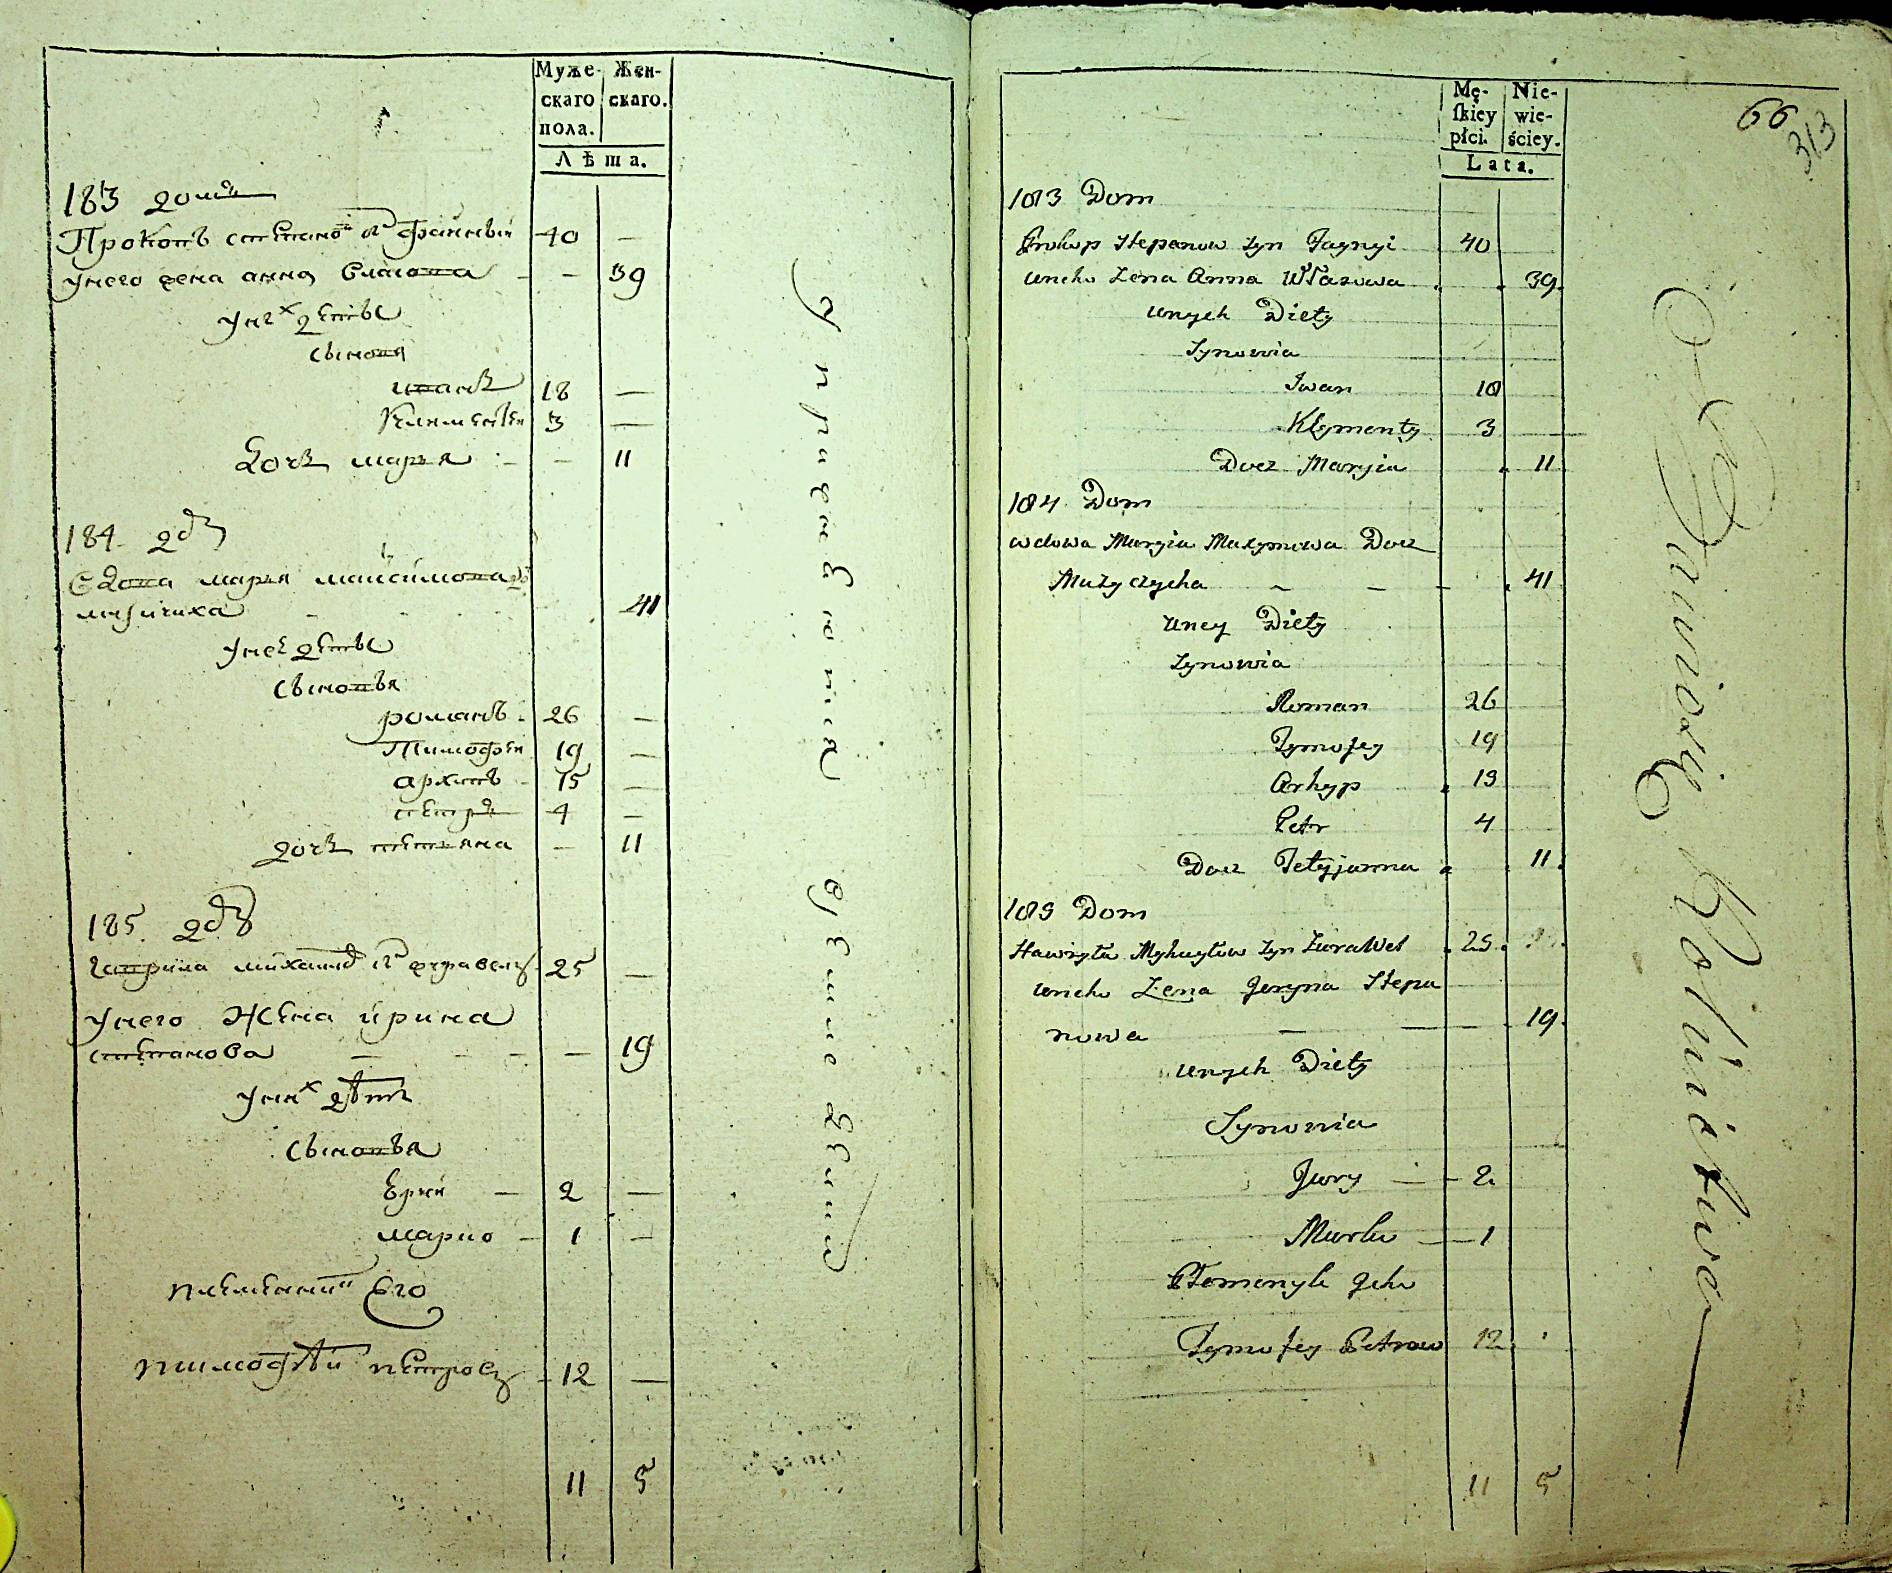 Муже-
скаго
пола.
Жен-
скаго.
Лѣта.
183 домъ
Прокопъ степанов снъ файный 40 —
унего жена анна власова - — 39
уних дѣти
сыновя
иванъ 18 —
Климентѣи 3 —
дочь марья - — 11
184 дом
вдова марья максимова
музичиха - 41
унеѣ дети
сыновья
романъ - 26 —
Тимофѣи 19 —
архипъ - 15 —
петръ 4 —
дочь тетьяна — 11
185 дом
гаврила михаилов снъ журавель 25 —
унего жена ирина
степанова — - - — 19
уних дѣти
сыновья
юрий — 2 —
марко - 1 —
племянник его
тимофѣй петров - 12 —
11 5
Mę-
skiey
płci.
Nie-
wie-
ściey.
Lata.
66
313
183 Dom
Prokop Stepanow syn Faynyi 40
uneho Żena Anna Własowa 39
unych Diety
Synowia
Iwan 18
Klymenty 3
Docz Maryia 11
184 Dom
wdowa Maryia Maxymowa Docz
Muzyczycha - - - 41
uney Diety
Synowia
Roman 26
Tymofey 19
Arhyp 15
Petr 4
Docz Tetyjanna 11
185 Dom
Hawryła Myhayłow syn Żurawel 25
uneho Żena Jeryna Stepa
nowa — — 19
unych Diety
Synowia
Jury — 2
Marko — 1
Płemenyk Jeho
Tymofey Petrow 12
11 5